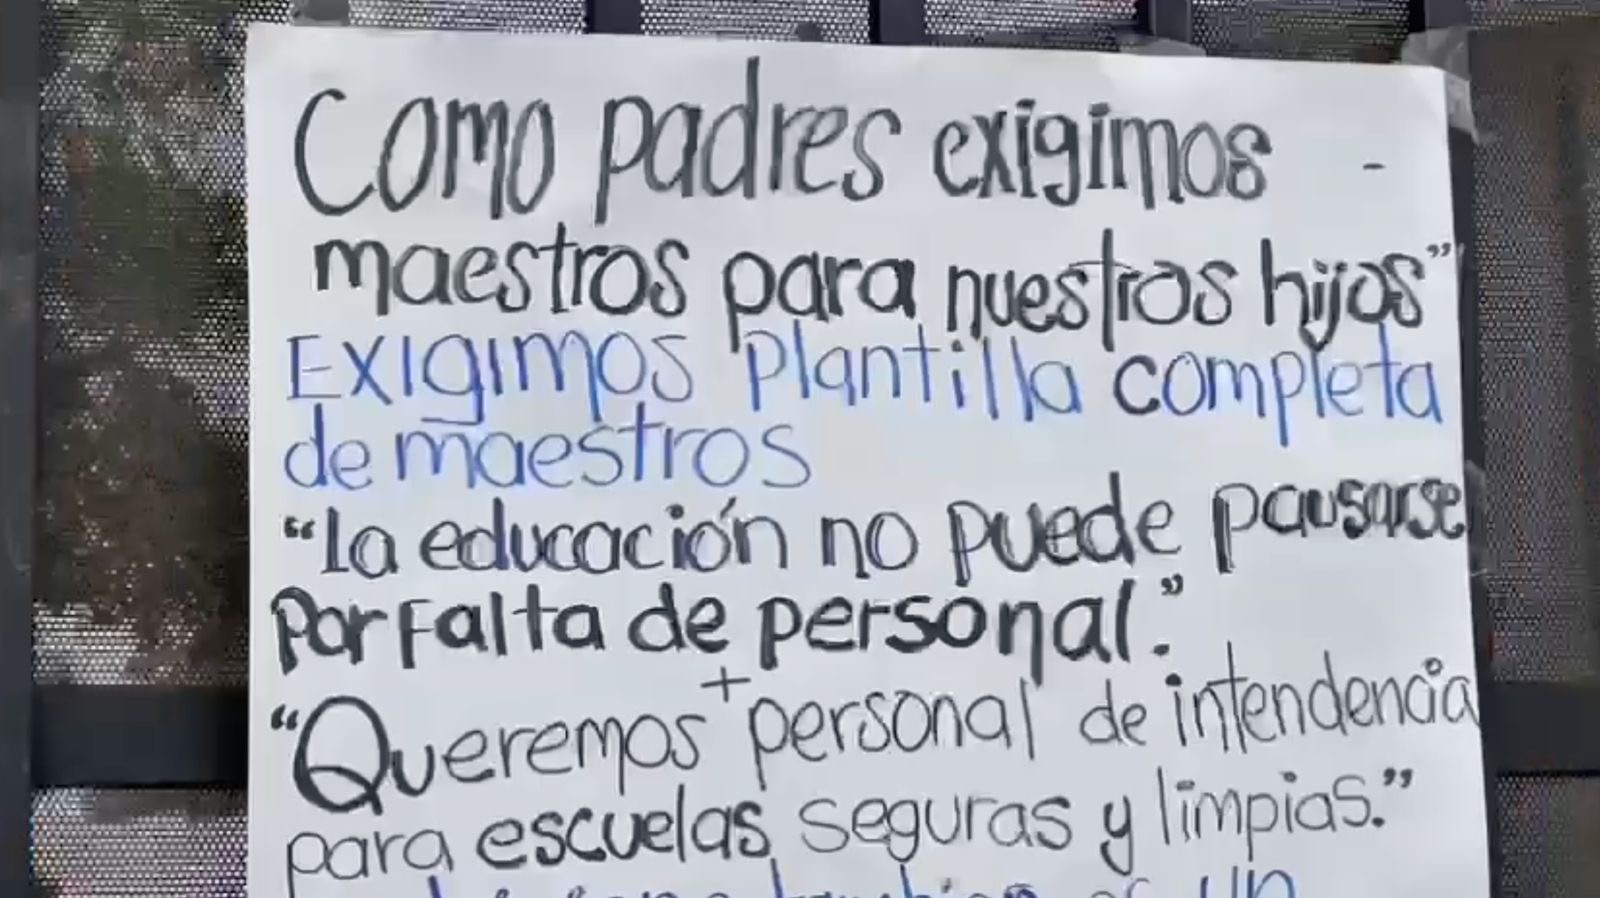 Como padres exigimos -
maestros para nuestros hijos"
Exigimos plantilla completa
de maestros
"la educación no puede pausarse
Por Falta de personal."
"Queremos + personal de intendencia
para escuelas seguras y limpias."
también es un